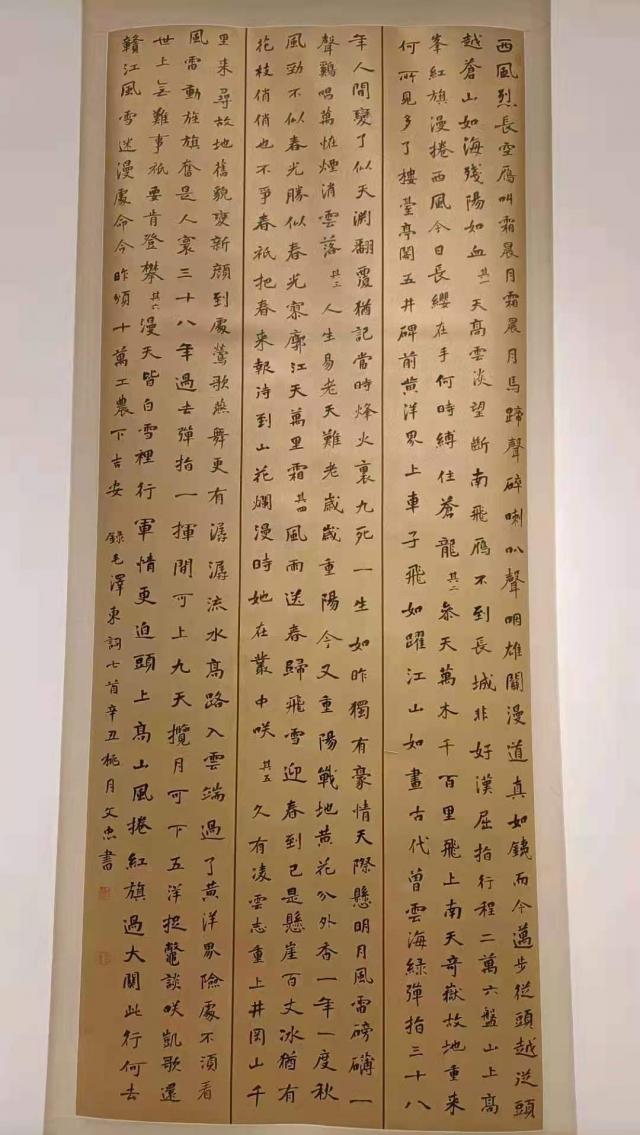 西風烈長空雁叫霜晨月霜晨月馬蹄聲碎喇叭聲咽雄關漫道真如鐵而今邁步從頭越從頭
越蒼山如海殘陽如血其一天高雲淡望斷南飛雁不到長城非好漢屈指行程二萬六盤山上高
峯紅旗漫捲西風今日長纓在手何時縛住蒼龍其二參天萬木千百里飛上南天奇嶽故地重來
何所見多了樓臺亭閣五井碑前黃洋界上車子飛如躍江山如畫古代曾雲海綠彈指三十八
年人間變了似天淵翻覆猶記當時烽火裏九死一生如昨獨有豪情天際懸明月風雷磅礴一
聲鷄唱萬恠煙消雲落其三人生易老天難老歲歲重陽今又重陽戰地黃花分外香一年一度秋
風勁不似春光勝似春光寥廓江天萬里霜其四風雨送春歸飛雪迎春到已是懸崖百丈冰猶有
花枝俏俏也不爭春祇把春來報待到山花爛漫時她在叢中咲其五久有凌雲志重上井岡山千
里來尋故地舊貌變新顏到處鶯歌燕舞更有潺潺流水高路入雲端過了黃洋界險處不須看
風雷動旌旗奮是人寰三十八年過去彈指一揮間可上九天攬月可下五洋捉鼈談咲凱歌還
世上無難事祇要肯登攀其六漫天皆白雪裡行軍情更迫頭上高山風捲紅旗過大關此行何去
贛江風雪迷漫處命令昨頒十萬工農下吉安錄毛澤東詞七首辛丑桃月文忠書